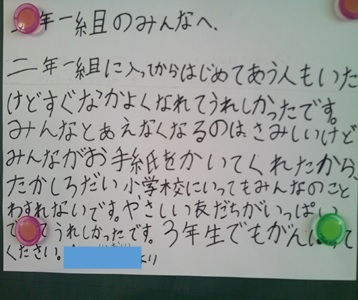 年一組のみんなへ、
二年一組に入ってからはじめてあう人もいた
けどすぐなかよくなれてうれしかったです。
みんなとあえなくなるのはさみしいけど
みんながお手紙をかいてくれたから、
たかしろだい小学校にいってもみんなのこと
わすれないです。やさしい友だちがいっぱい
てうれしかったです。3年生でもがんばって
ください。
より